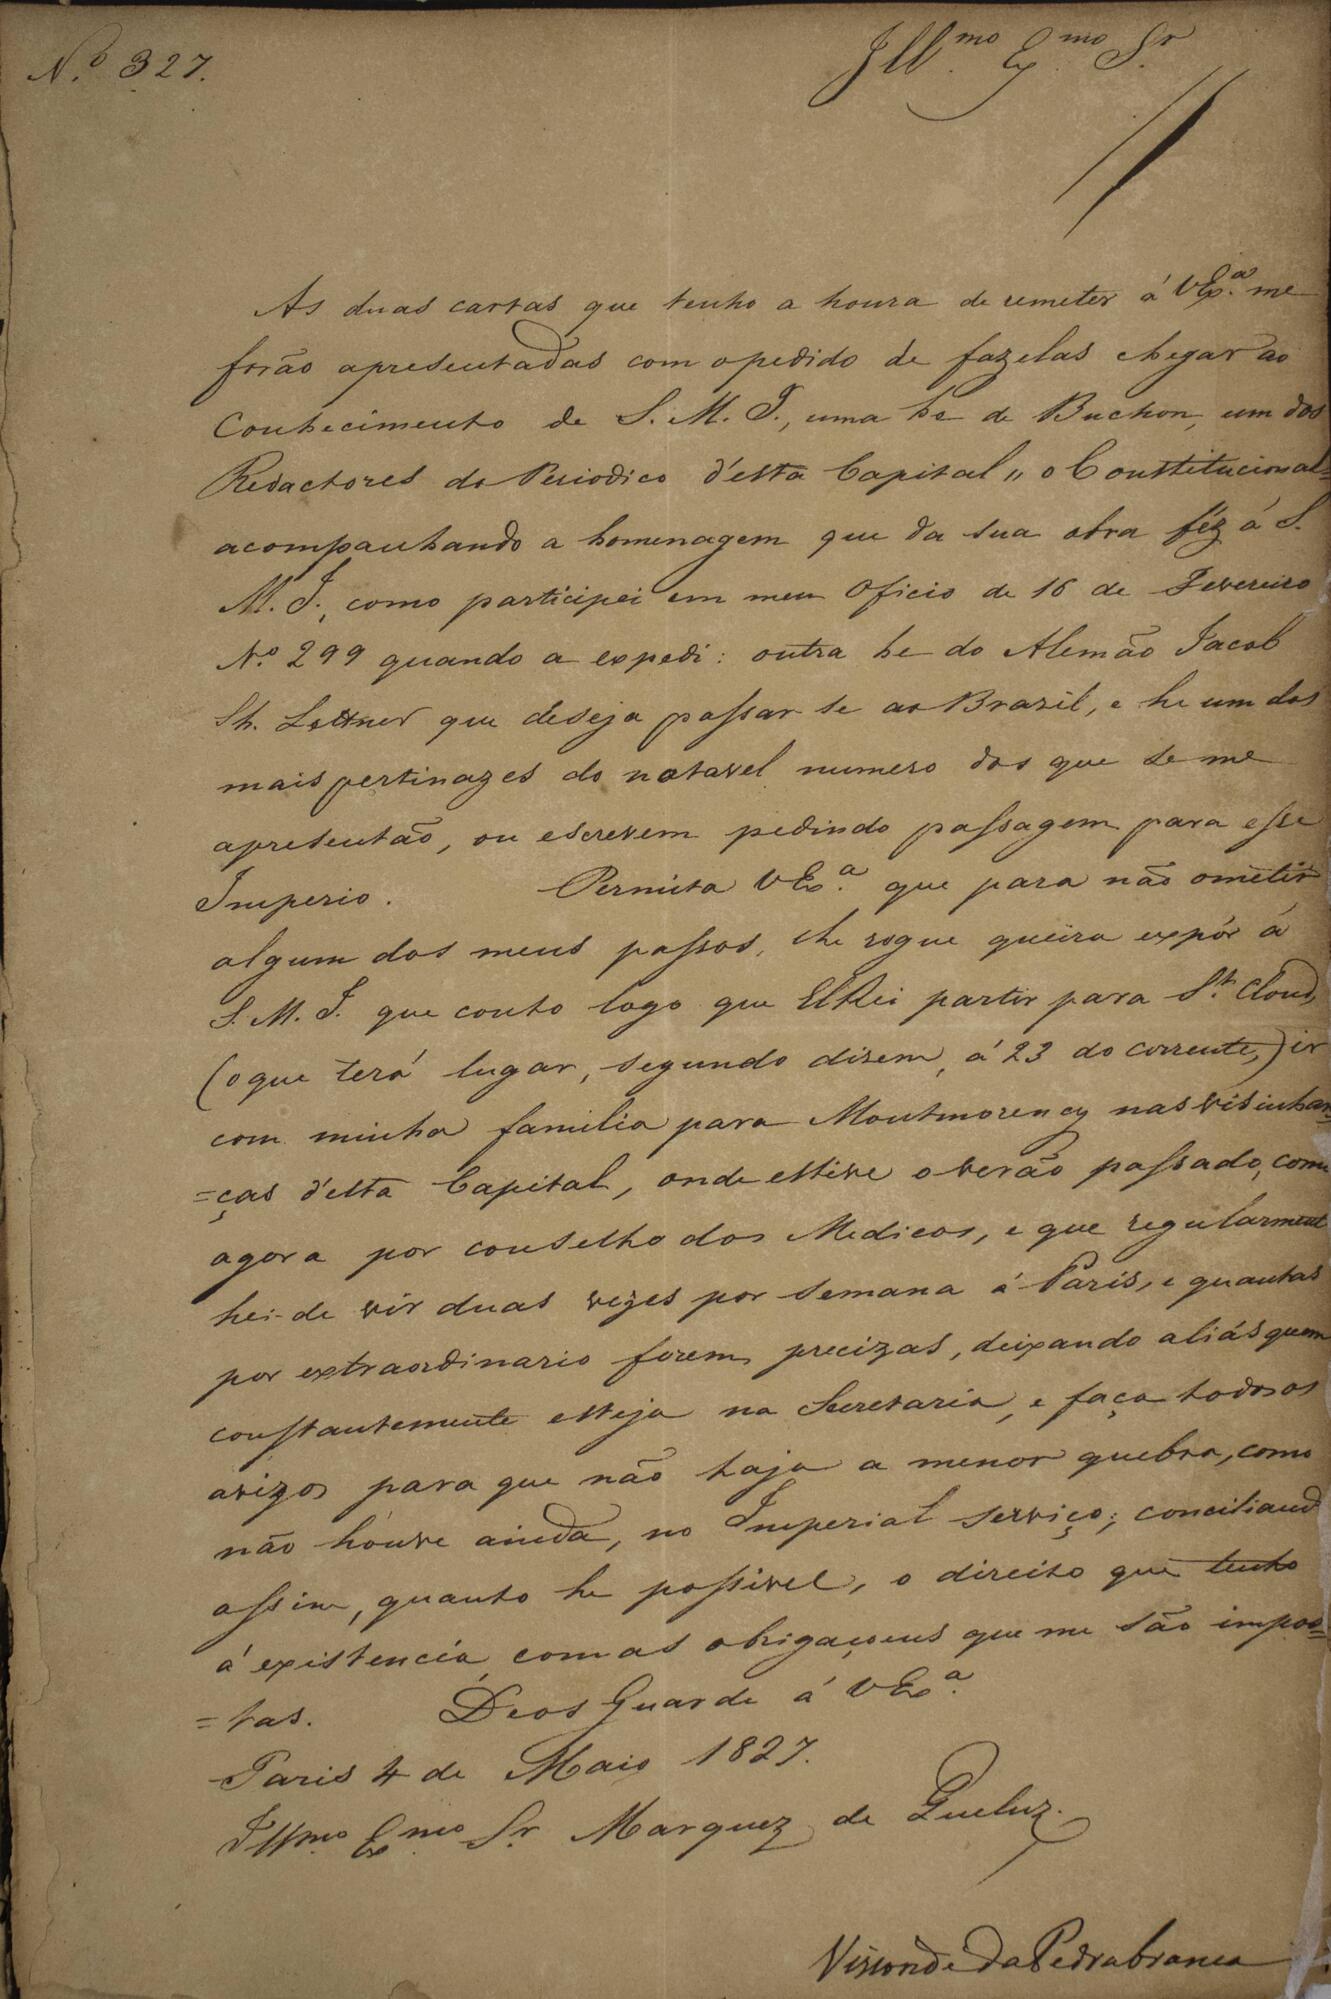 N.º 327.
Ill.mo Ex.mo Sr
As duas cartas que tenho a honra de remeter á VEx.ª me
forão apresentadas com o pedido de fazelas chegar ao
Conhecimento de S. M. I., uma he de Buchon, um dos
Redactores do Periodico d'esta Capital " o Constitucional=
acompanhando a homenagem que da sua obra féz á S.
M. I., como participei em meu Oficio de 16 de Fevereiro
N.º 299 quando a expedi: outra he do Alemão Jacob
Sh. que deseja passar se ao Brazil, e he um dos
mais pertinazes do notavel numero dos que se me
apresentão, ou escrevem pedindo passagem para esse
Imperio. Permita VEx.ª que para não ometir
algum dos meus passos, lhe rogue queira expôr á
S. M. I. que conto logo que ElRei partir para St. Cloud,
(o que terá lugar, segundo dizem, á 23 do corrente,) ir
com minha familia para Montmorency nas visinhan=
=ças d'esta Capital, onde estive o verão passado, como
agora por conselho dos Medicos, e que regularment
hei-de vir duas vezes por semana á Paris, e quantas
por extraordinario forem precizas, deixando aliás quem
constantemente esteja na Secretaria, e faça todos os
avizos para que não haja a menor quebra, como
não houve ainda, no Imperial serviço; conciliand
assim, quanto he possivel, o direito que tenho
á existencia com as obrigaçoens que me são impos=
=tas. Deos Guarde á VEx.ª
Paris 4 de Maio 1827.
Illmo. Exmo Sr. Marquez de Queluz.
Visconde da Pedrabranca